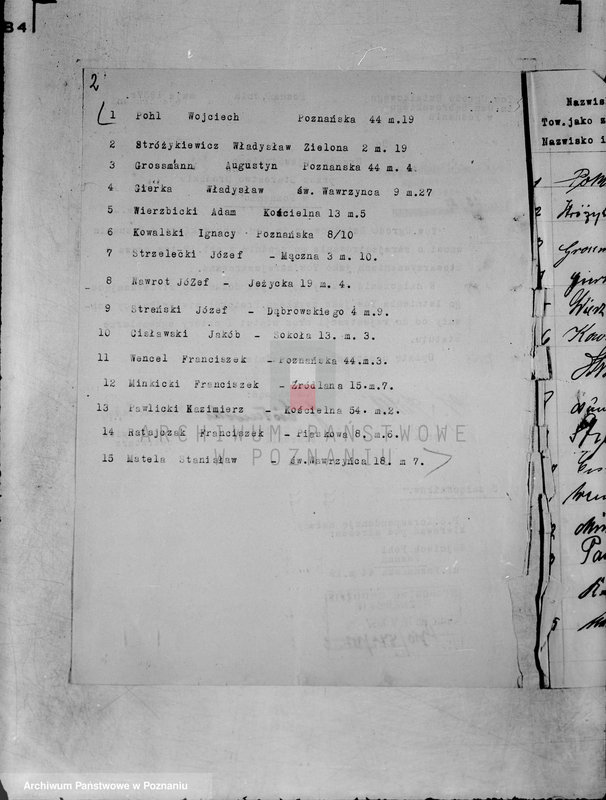 B4
2
1 Pohl Wojciech Poznańska 44 m.19
2 Stróżykiewicz Władysław Zielona 2 m. 19
3 Grossmann Augustyn Poznanska 44 m. 4.
4 Gierka Władysław św. Wawrzynca 9 m.27
5 Wierzbicki Adam Kościelna 13 m.5
6 Kowalski Ignacy Poznańska 8/10
7 Strzelecki Józef - Mączna 3 m. 10.
8 Nawrot JóZef - Jeżycka 19 m. 4.
9 Streński Józef - Dąbrowskiego 4 m.9.
10 Cisławski Jakób - Sokoła 13. m. 3.
11 Wencel Franciszek - Poznańska 44.m.3.
12 Minkicki Franciszek - Źródlana 15.m.7.
13 Pawlicki Kazimierz - Kościelna 54. m.2.
14 Ratajczak Franciszek - Piaskowa 8. m.6.
15 Matela Stanisław - św.Wawrzyńca 18. m 7.
ARCHIWUM PAŃSTWOWE
W POZNANIU
Nazwis
Tow. jako z
Nazwisko i
Archiwum Państwowe w Poznaniu